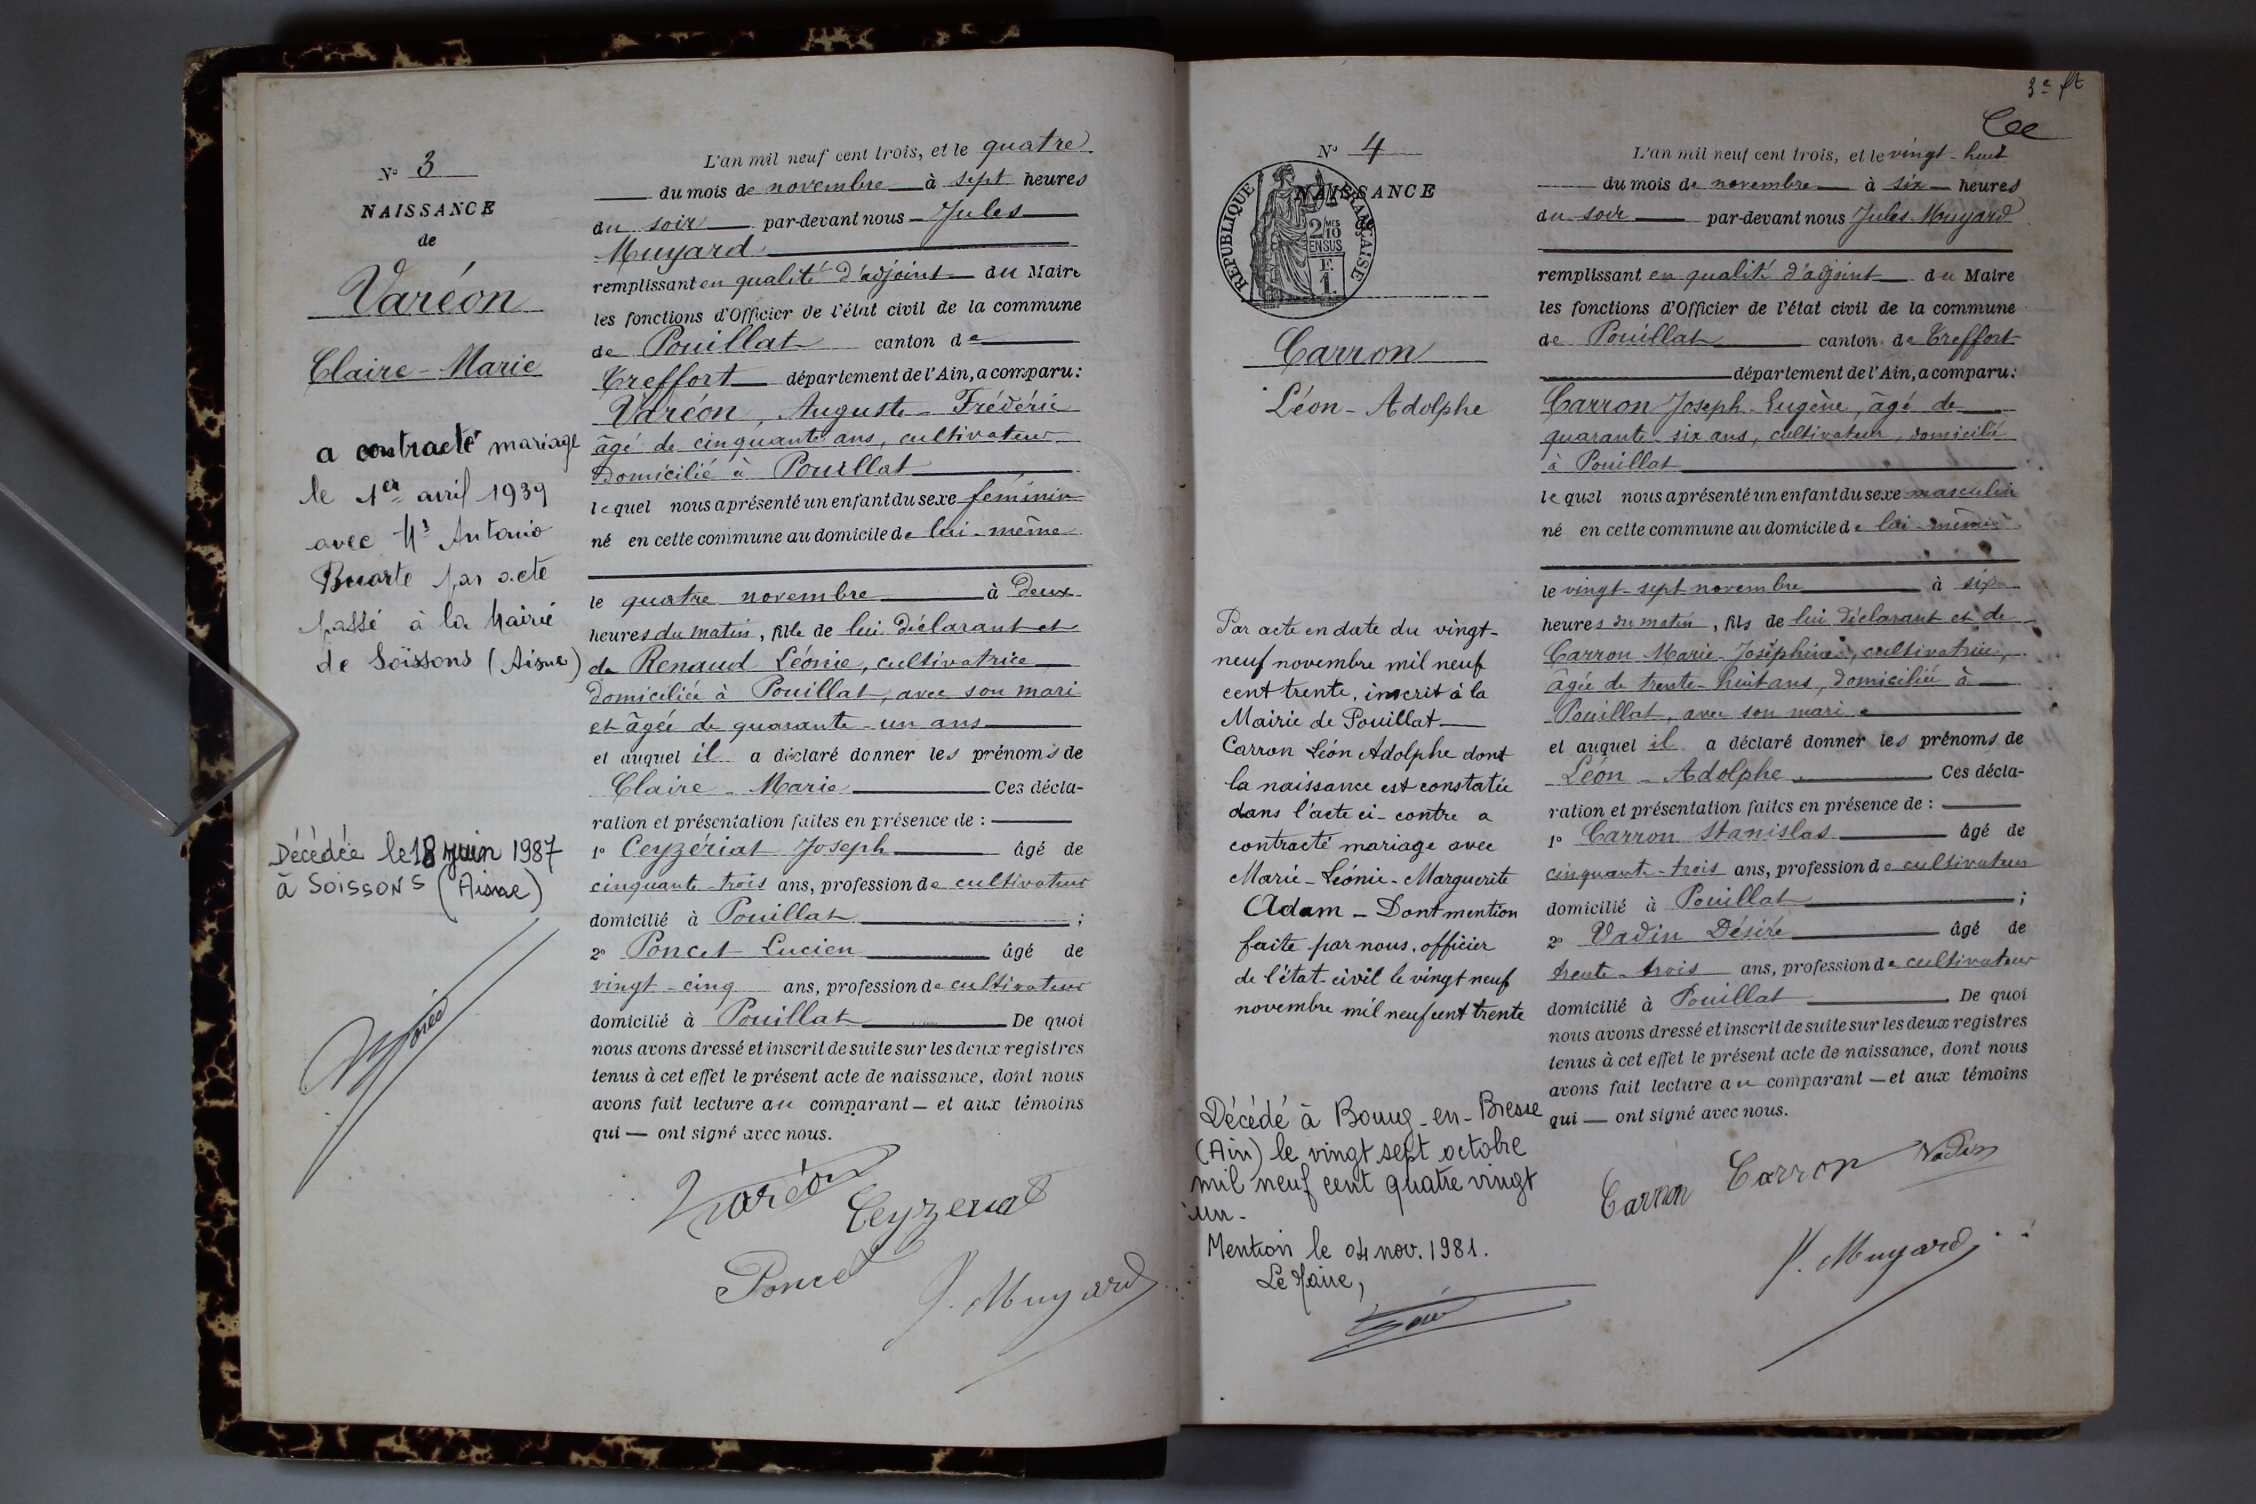 Nº 3
NAISSANCE
de
Varéon
Claire-Marie
a contracté mariage
le 1er avril 1939
avec Mr Antonio
par acte
passé à la Mairie
de Soissons (Aisne)
Décédée le 18 juin 1987
à SOISSONS (Aisne)
L'an mil neuf cent trois, et le quatre
du mois de novembre à sept heures
du soir par-devant nous Jules
Muyard
remplissant en qualité d'adjoint du Maire
les fonctions d'Officier de l'état civil de la commune
de Pouillat canton de
Treffort département de l'Ain, a comparu:
Varéon, Auguste-Frédéric
âgé de cinquante ans, cultivateur
domicilié à Pouillat
lequel nous a présenté un enfant du sexe féminin
né en cette commune au domicile de lui-même
le quatre novembre à deux
heures du matin, fille de lui déclarant et
de Renaud Léonie, cultivatrice
domiciliée à Pouillat, avec son mari
et âgée de quarante-un ans
et auquel il a déclaré donner les prénoms de
Claire-Marie Ces décla-
ration et présentation faites en présence de :
1º Ceyzériat Joseph âgé de
cinquante-trois ans, profession de cultivateur
domicilié à Pouillat ;
2º Poncet Lucien âgé de
vingt-cinq ans, profession de cultivateur
domicilié à Pouillat De quoi
nous avons dressé et inscrit de suite sur les deux registres
tenus à cet effet le présent acte de naissance, dont nous
avons fait lecture au comparant — et aux témoins
qui — ont signé avec nous.
Varéon
Ceyzeriat
Poncet
J. Muyard
3e
Nº 4
NAISSANCE
de
RÉPUBLIQUE FRANÇAISE
2/10 MES
EN SUS
F.
1.
Carron
Léon-Adolphe
Par acte en date du vingt-
neuf novembre mil neuf
cent trente, inscrit à la
Mairie de Pouillat
Carron Léon Adolphe dont
la naissance est constatée
dans l'acte ci-contre a
contracté mariage avec
Marie-Léonie-Marguerite
Adam - Dont mention
faite par nous, officier
de l'état-civil le vingt neuf
novembre mil neuf cent trente
Décédé à Bourg-en-Bresse
(Ain) le vingt sept octobre
mil neuf cent quatre vingt
un-
Mention le 04 nov. 1981.
Le Maire,
L'an mil neuf cent trois, et le vingt-huit
du mois de novembre à six heures
du soir par-devant nous Jules Muyard
remplissant en qualité d'adjoint du Maire
les fonctions d'Officier de l'état civil de la commune
de Pouillat canton de Treffort
département de l'Ain, a comparu:
Carron Joseph-Eugène, âgé de
quarante-six ans, cultivateur, domicilié
à Pouillat
lequel nous a présenté un enfant du sexe masculin
né en cette commune au domicile de lui-même
le vingt-sept novembre à six
heures du matin, fils de lui déclarant et de
Carron Marie-Joséphine, cultivatrice,
âgée de trente-huit ans, domiciliée à
Pouillat, avec son mari
et auquel il a déclaré donner les prénoms de
Léon-Adolphe Ces décla-
ration et présentation faites en présence de :
1º Carron Stanislas âgé de
cinquante-trois ans, profession de cultivateur
domicilié à Pouillat ;
2º Vadin Désiré âgé de
trente-trois ans, profession de cultivateur
domicilié à Pouillat De quoi
nous avons dressé et inscrit de suite sur les deux registres
tenus à cet effet le présent acte de naissance, dont nous
avons fait lecture au comparant — et aux témoins
qui — ont signé avec nous.
Carron
Carron
Vadin
J. Muyard